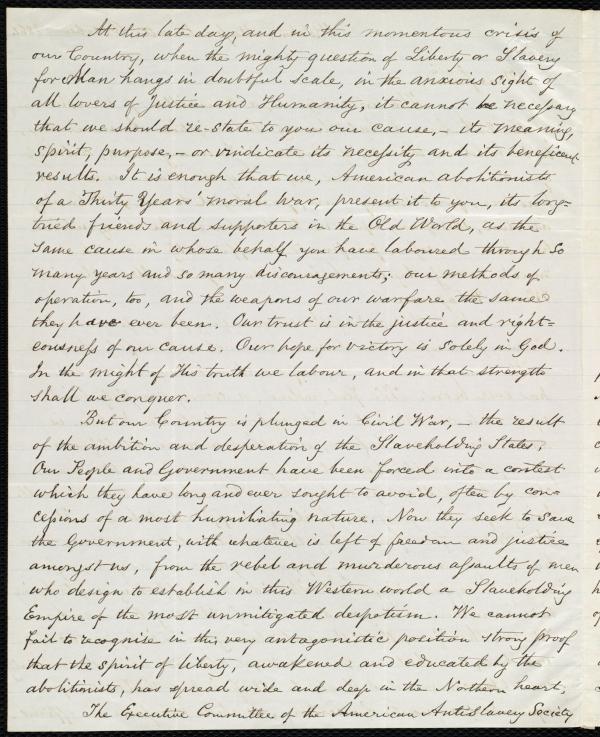 At this late day, and in this momentous crisis of
our Country, when the mighty question of Liberty or Slavery
for Man hangs in doubtful scale, in the anxious sight of
all lovers of Justice and Humanity, it cannot be necessary
that we should re-state to you our cause, – its meaning,
spirit, purpose, – or vindicate its necessity and its beneficent
results. It is enough that we, American abolitionists
of a Thirty Years' moral war, present it to you, its long-
tried friends and supporters in the Old World, as the
same cause in whose behalf you have laboured through so
many years and so many discouragements; our methods of
operation, too, and the weapons of our warfare the same
they have ever been. Our trust is in the justice and right=
eousness of our cause. Our hope for victory is solely in God.
In the might of His truth we labour, and in that strength
shall we conquer.
But our Country is plunged in Civil War, – the result
of the ambition and desperation of the Slaveholding States.
Our People and Government have been forced into a contest
which they have long and ever sought to avoid, often by con
cessions of a most humiliating nature. Now they seek to save
the Government, with whatever is left of freedom and justice
amongst us, from the rebel and murderous assaults of men
who design to establish in this Western world a Slaveholding
Empire of the most unmitigated despotism. We cannot
fail to recognise in this very antagonistic position strong proof
that the spirit of liberty, awakened and educated by the
abolitionists, has spread wide and deep in the Northern heart.
The Executive Committee of the American AntiSlavery Society